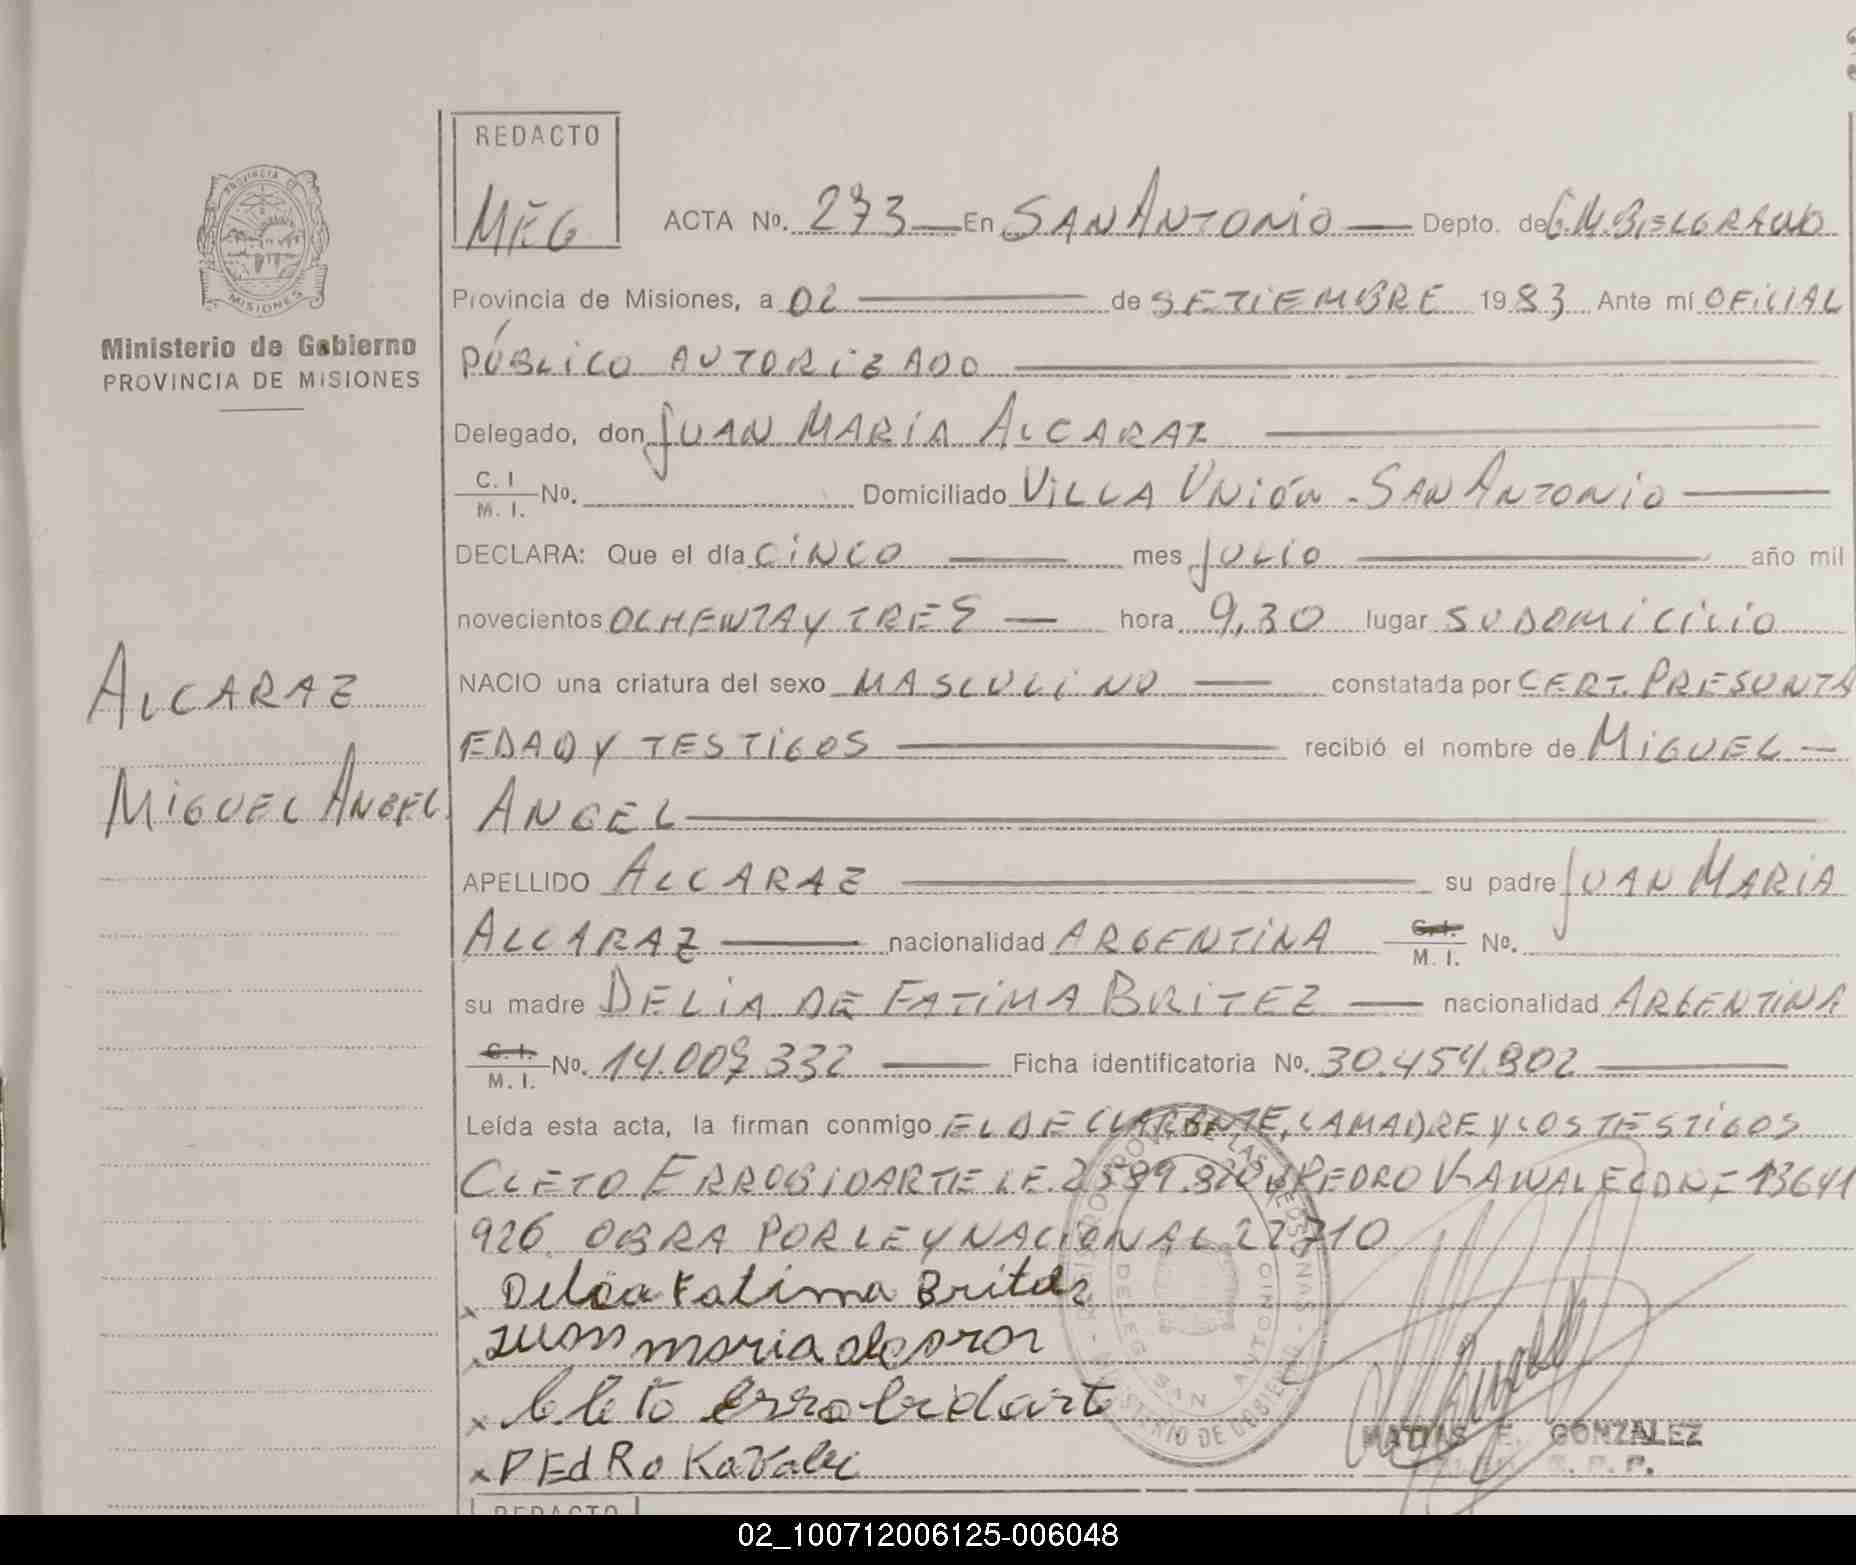 REDACTO
MEG
ACTA Nº. 273 En SAN ANTONIO Depto. de G.M.BELGRANO
Provincia de Misiones, a 02 de SETIEMBRE 1983 Ante mí OFICIAL
PÚBLICO AUTORIZADO
PROVINCIA DE MISIONES
Ministerio de Gobierno
PROVINCIA DE MISIONES
Delegado, don JUAN MARÍA ALCARAZ
C. I M. I. Nº. Domiciliado VILLA UNIÓN - SAN ANTONIO
DECLARA: Que el día CINCO mes JULIO año mil
novecientos OCHENTA Y TRES hora 9,30 lugar SU DOMICILIO
NACIO una criatura del sexo MASCULINO constatada por CERT. PRESUNTA
EDAD Y TESTIGOS recibió el nombre de MIGUEL
ANGEL
ALCARAZ
MIGUEL ANGEL
APELLIDO ALCARAZ su padre JUAN MARIA
ALCARAZ nacionalidad ARGENTINA C.I. M. I. Nº.
su madre DELIA DE FATIMA BRITEZ nacionalidad ARGENTINA
C.I. M. I. Nº. 14.009.332 Ficha identificatoria Nº. 30.454.902
Leída esta acta, la firman conmigo EL DECLARANTE, LA MADRE Y LOS TESTIGOS
CLETO ERROBIDARTE L.E. PEDRO KAWALEC DNI 13641
926. OBRA POR LEY NACIONAL 22710
x Delia Fatima Britez
x Juan maria alcaraz
x Cleto Errobidarte
x PEdRo Kavalec
REGISTRO DE LAS PERSONAS - MINISTERIO DE GOBIERNO
DELEG. SAN ANTONIO
MATIAS E. GONZALEZ
REDACTO
02_100712006125-006048